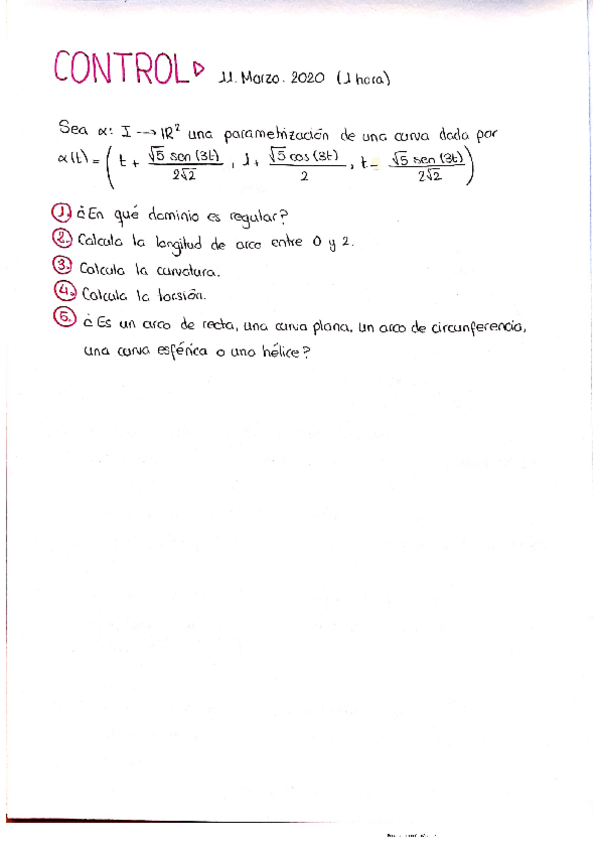 CONTROL ▷ 11. Marzo. 2020 (1 hora)
Sea α: I → IR² una parametrización de una curva dada por
α(t) = ( t + √5 sen (3t) / 2√2 , 1 + √5 cos (3t) / 2 , t - √5 sen (3t) / 2√2 )
1. ¿En qué dominio es regular?
2. Calcula la longitud de arco entre 0 y 2.
3. Calcula la curvatura.
4. Calcula la torsión.
5. ¿Es un arco de recta, una curva plana, un arco de circunferencia,
una curva esférica o una hélice?